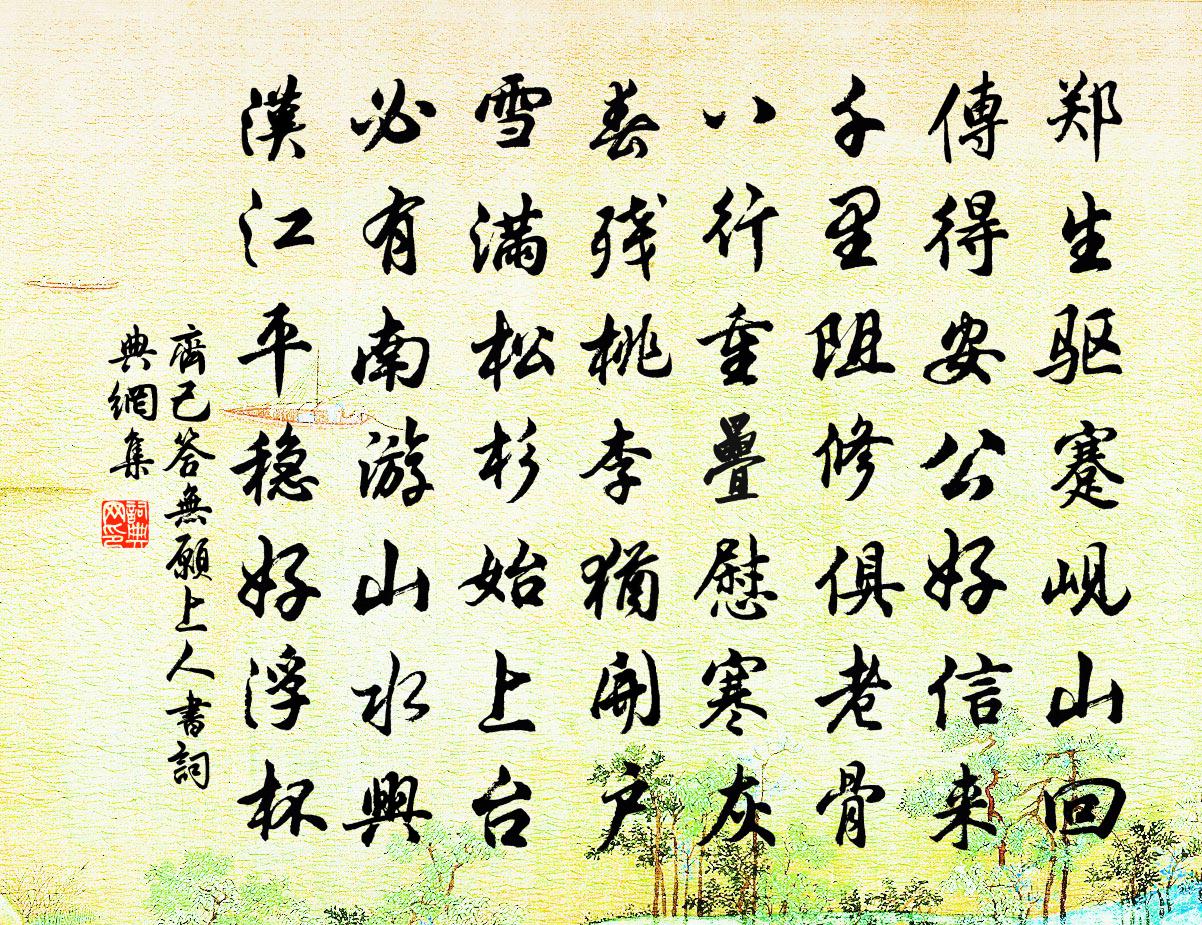 郑生驱蹇岘山回
傳得安公好信来
千里阻修俱老骨
八行重疊慰寒灰
春残桃李猶開户
雪满松杉始上台
必有南游山水興
漢江平稳好浮杯
齊己答無願上人書詞
典網集
詞典
网印